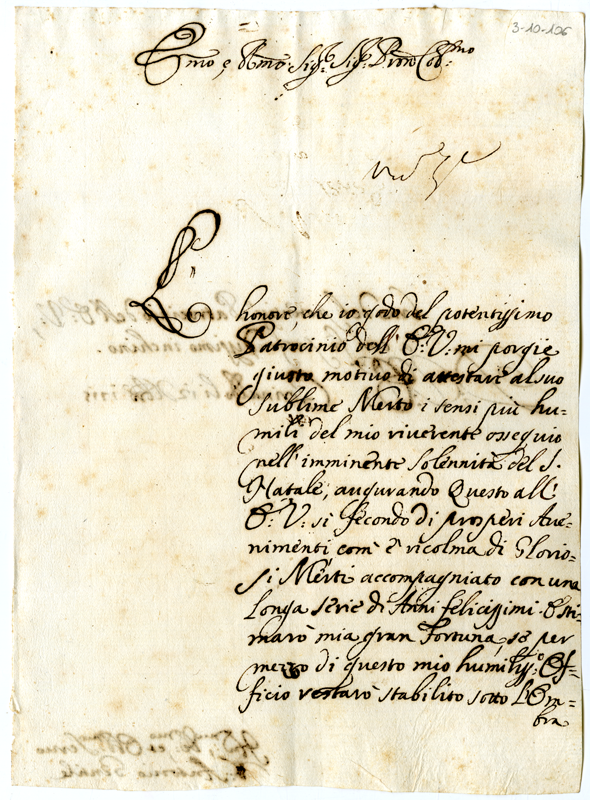 3-10-106
Emo e Rmo Sig.r Sig.r Pron Col.mo
L'
honore, che io godo del potentissimo
Patrocinio dell' E: V: mi porgie
giusto motivo di attestare al suo
Sublime Merto i sensi più hu=
mili del mio riverente ossequio
nell' imminente Solennità del S.
Natale, augurando Questo all'
E: V: si fecondo di prosperi Aue=
nimenti com' è ricolma di Glorio=
si Merti accompagniato con una
Longa serie di Anni felicissimi. Esti=
marò mia gran Fortuna, se per
mezzo di questo mio humiliss.o Of=
ficio restarò stabilito sotto L'Om=
bra